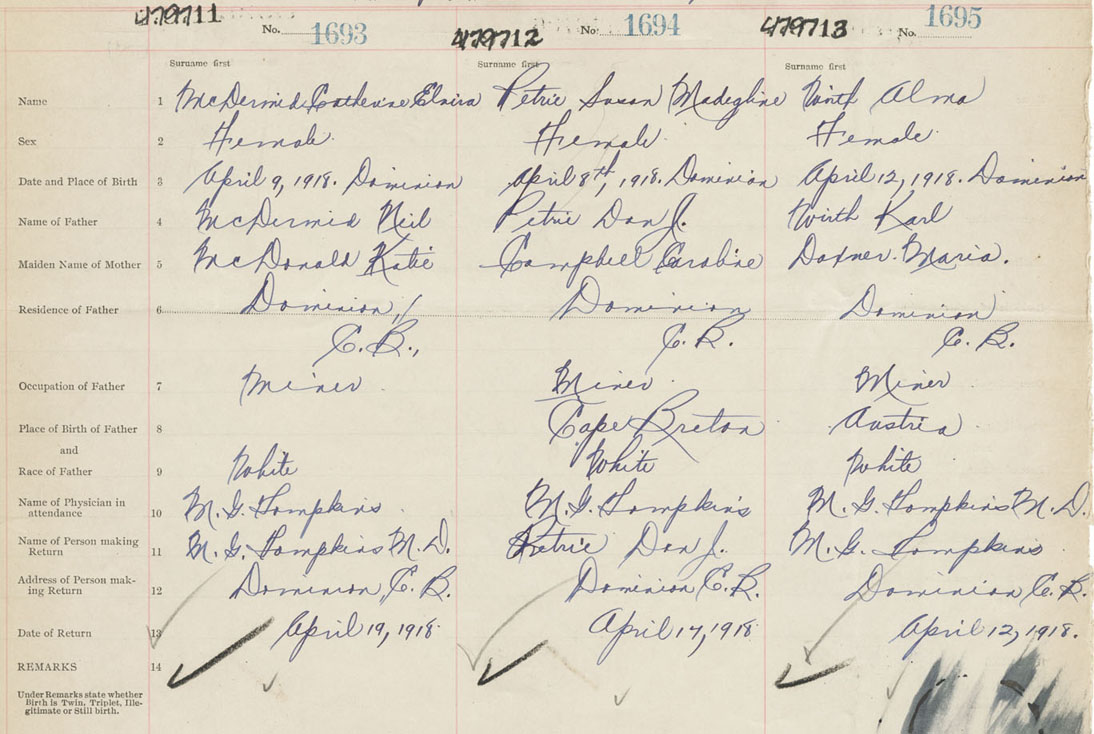 479711 No. 1693 479712 No. 1694 479713 No. 1695
Surname first Surname first Surname first
Name 1 McDermid Catherine Elvira Petrie Susan Madegline Wirth Alma
Sex 2 Female Female Female
Date and Place of Birth 3 April 9, 1918. Dominion April 8th, 1918. Dominion April 12, 1918. Dominion
Name of Father 4 McDermid Neil Petrie Dan J. Wirth Karl
Maiden Name of Mother 5 McDonald Katie Campbell Caroline Maria.
Residence of Father 6 Dominion, Dominion Dominion
C. B., C. B. C. B.
Occupation of Father 7 Miner Miner Miner
Place of Birth of Father 8 Cape Breton Austria
and
Race of Father 9 White White White
Name of Physician in
attendance 10 M. G. Tompkins M. G. Tompkins M. G. Tompkins M. D.
Name of Person making
Return 11 M. G. Tompkins M. D. Petrie Dan J. M. G. Tompkins
Address of Person mak-
ing Return 12 Dominion, C. B. Dominion C. B. Dominion C. B.
Date of Return 13 April 19, 1918 April 17, 1918 April 12, 1918.
REMARKS 14
Under Remarks state whether
Birth is Twin, Triplet, Ille-
gitimate or Still birth.